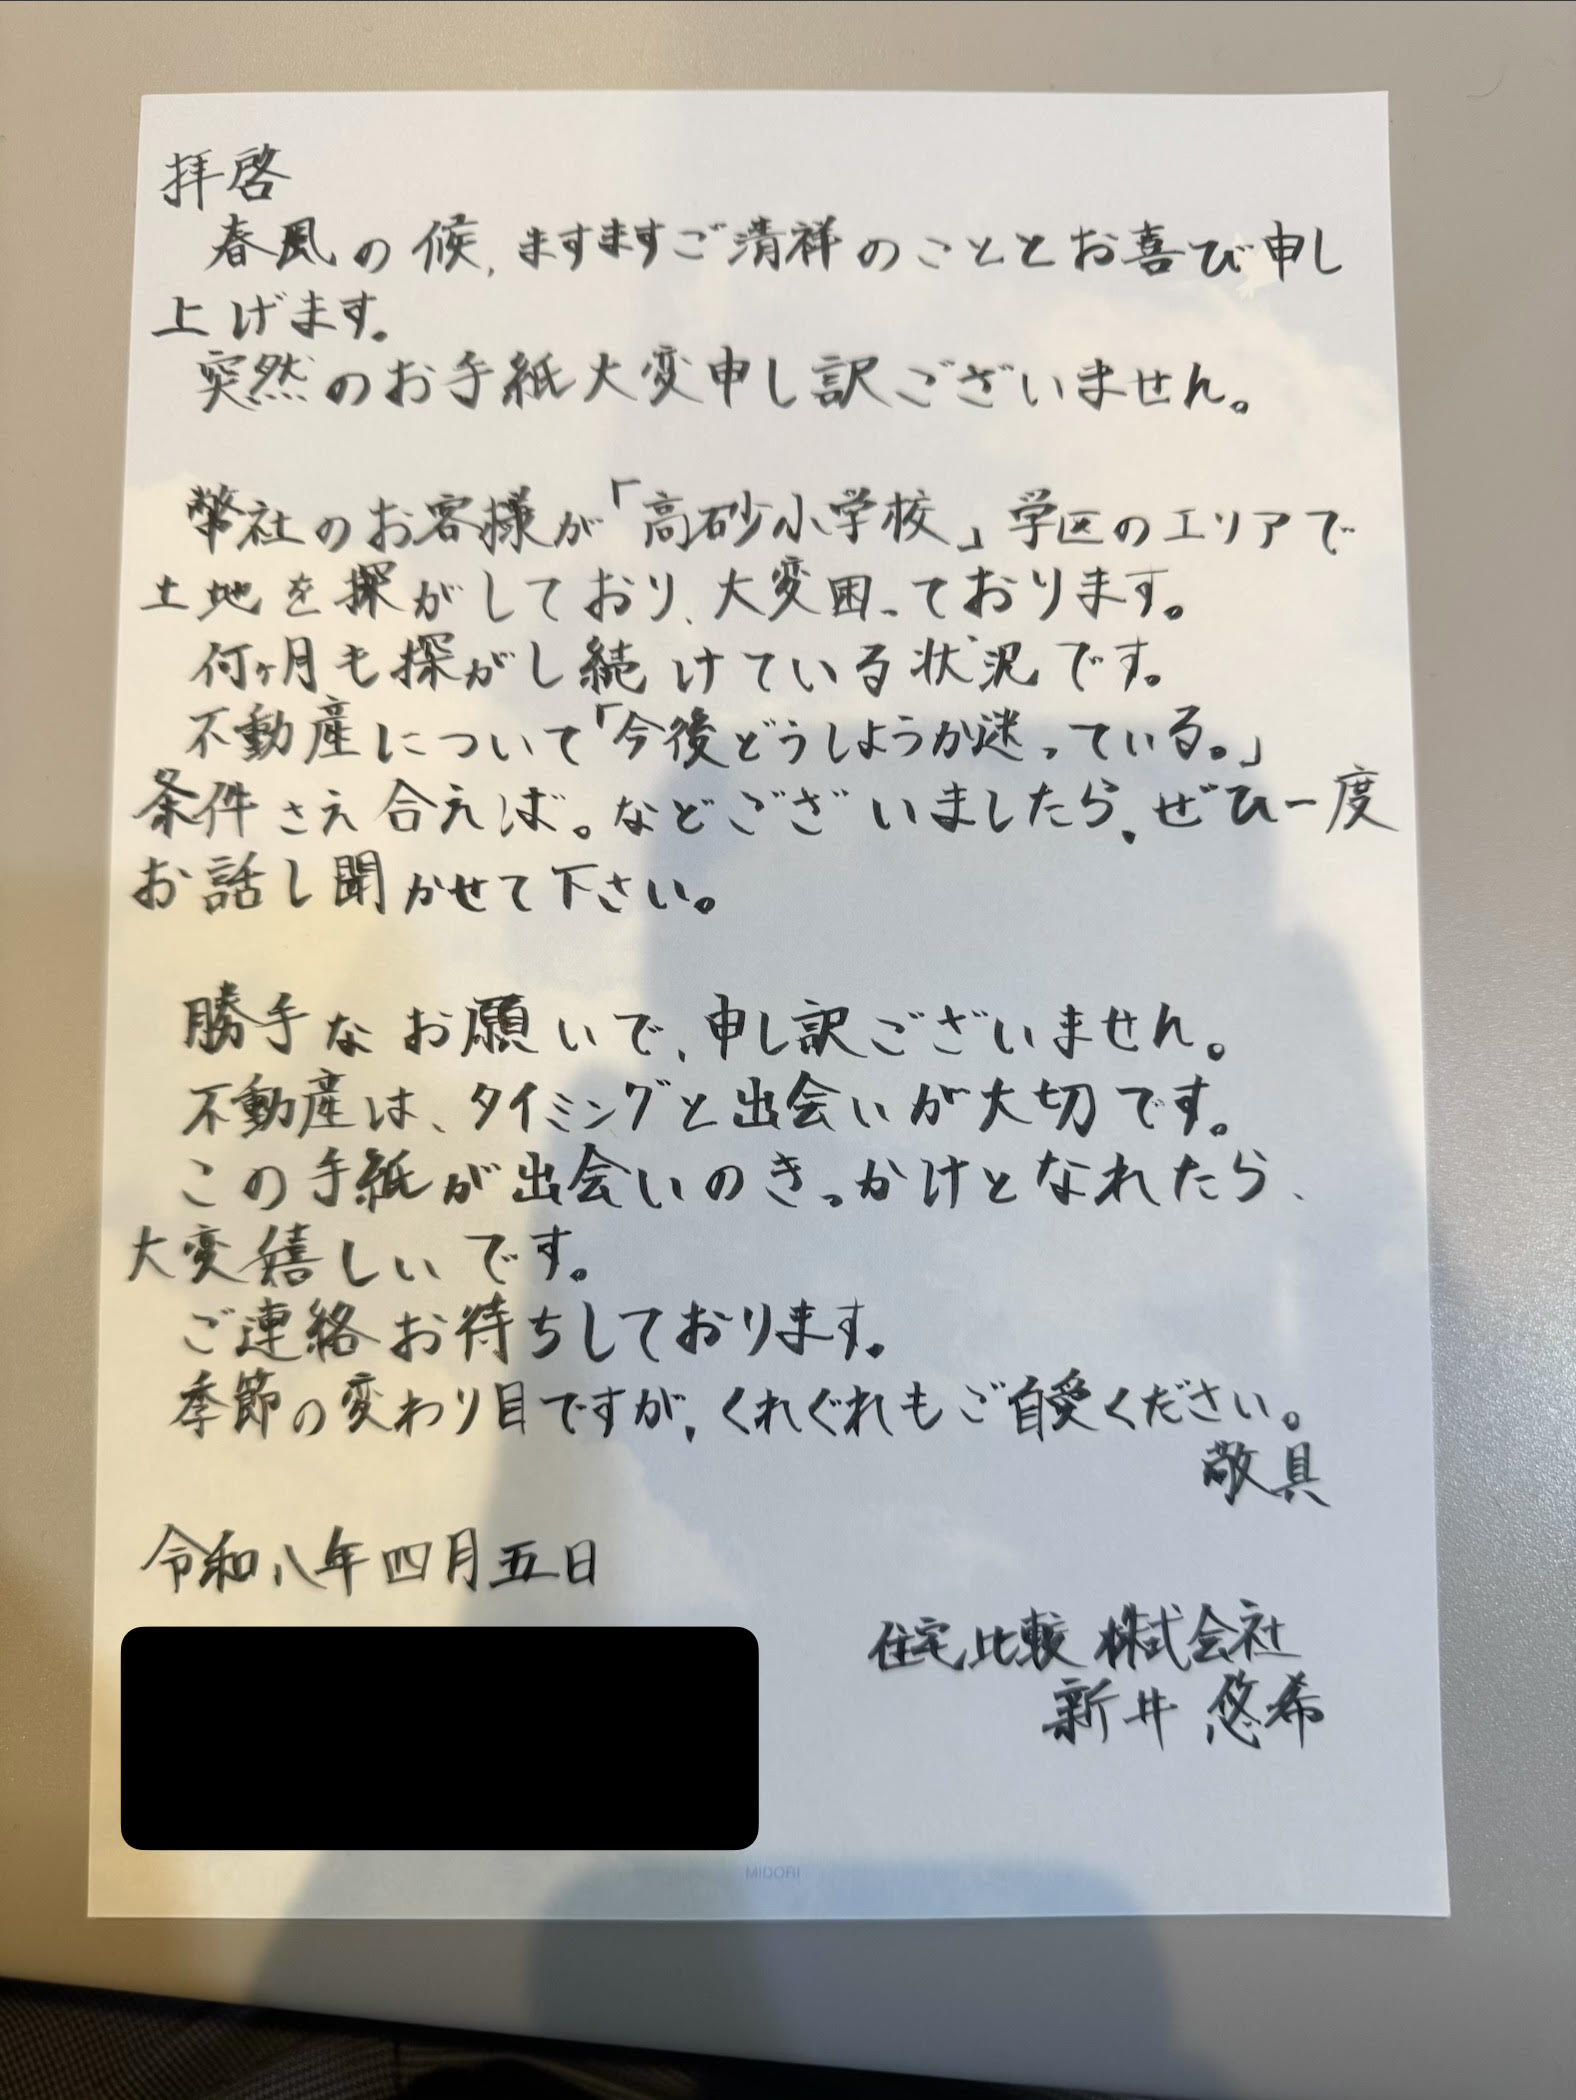 拝啓
春風の候、ますますご清祥のこととお喜び申し
上げます。
突然のお手紙大変申し訳ございません。
弊社のお客様が「高砂小学校」学区のエリアで
土地を探がしており、大変困っております。
何ヶ月も探がし続けている状況です。
不動産について「今後どうしようか迷っている。」
条件さえ合えば。などございましたら、ぜひ一度
お話し聞かせて下さい。
勝手なお願いで、申し訳ございません。
不動産は、タイミングと出会いが大切です。
この手紙が出会いのきっかけとなれたら、
大変嬉しいです。
ご連絡お待ちしております。
季節の変わり目ですが、くれぐれもご自愛ください。
敬具
令和八年四月五日
住宅比較 株式会社
新井 悠希
MIDORI